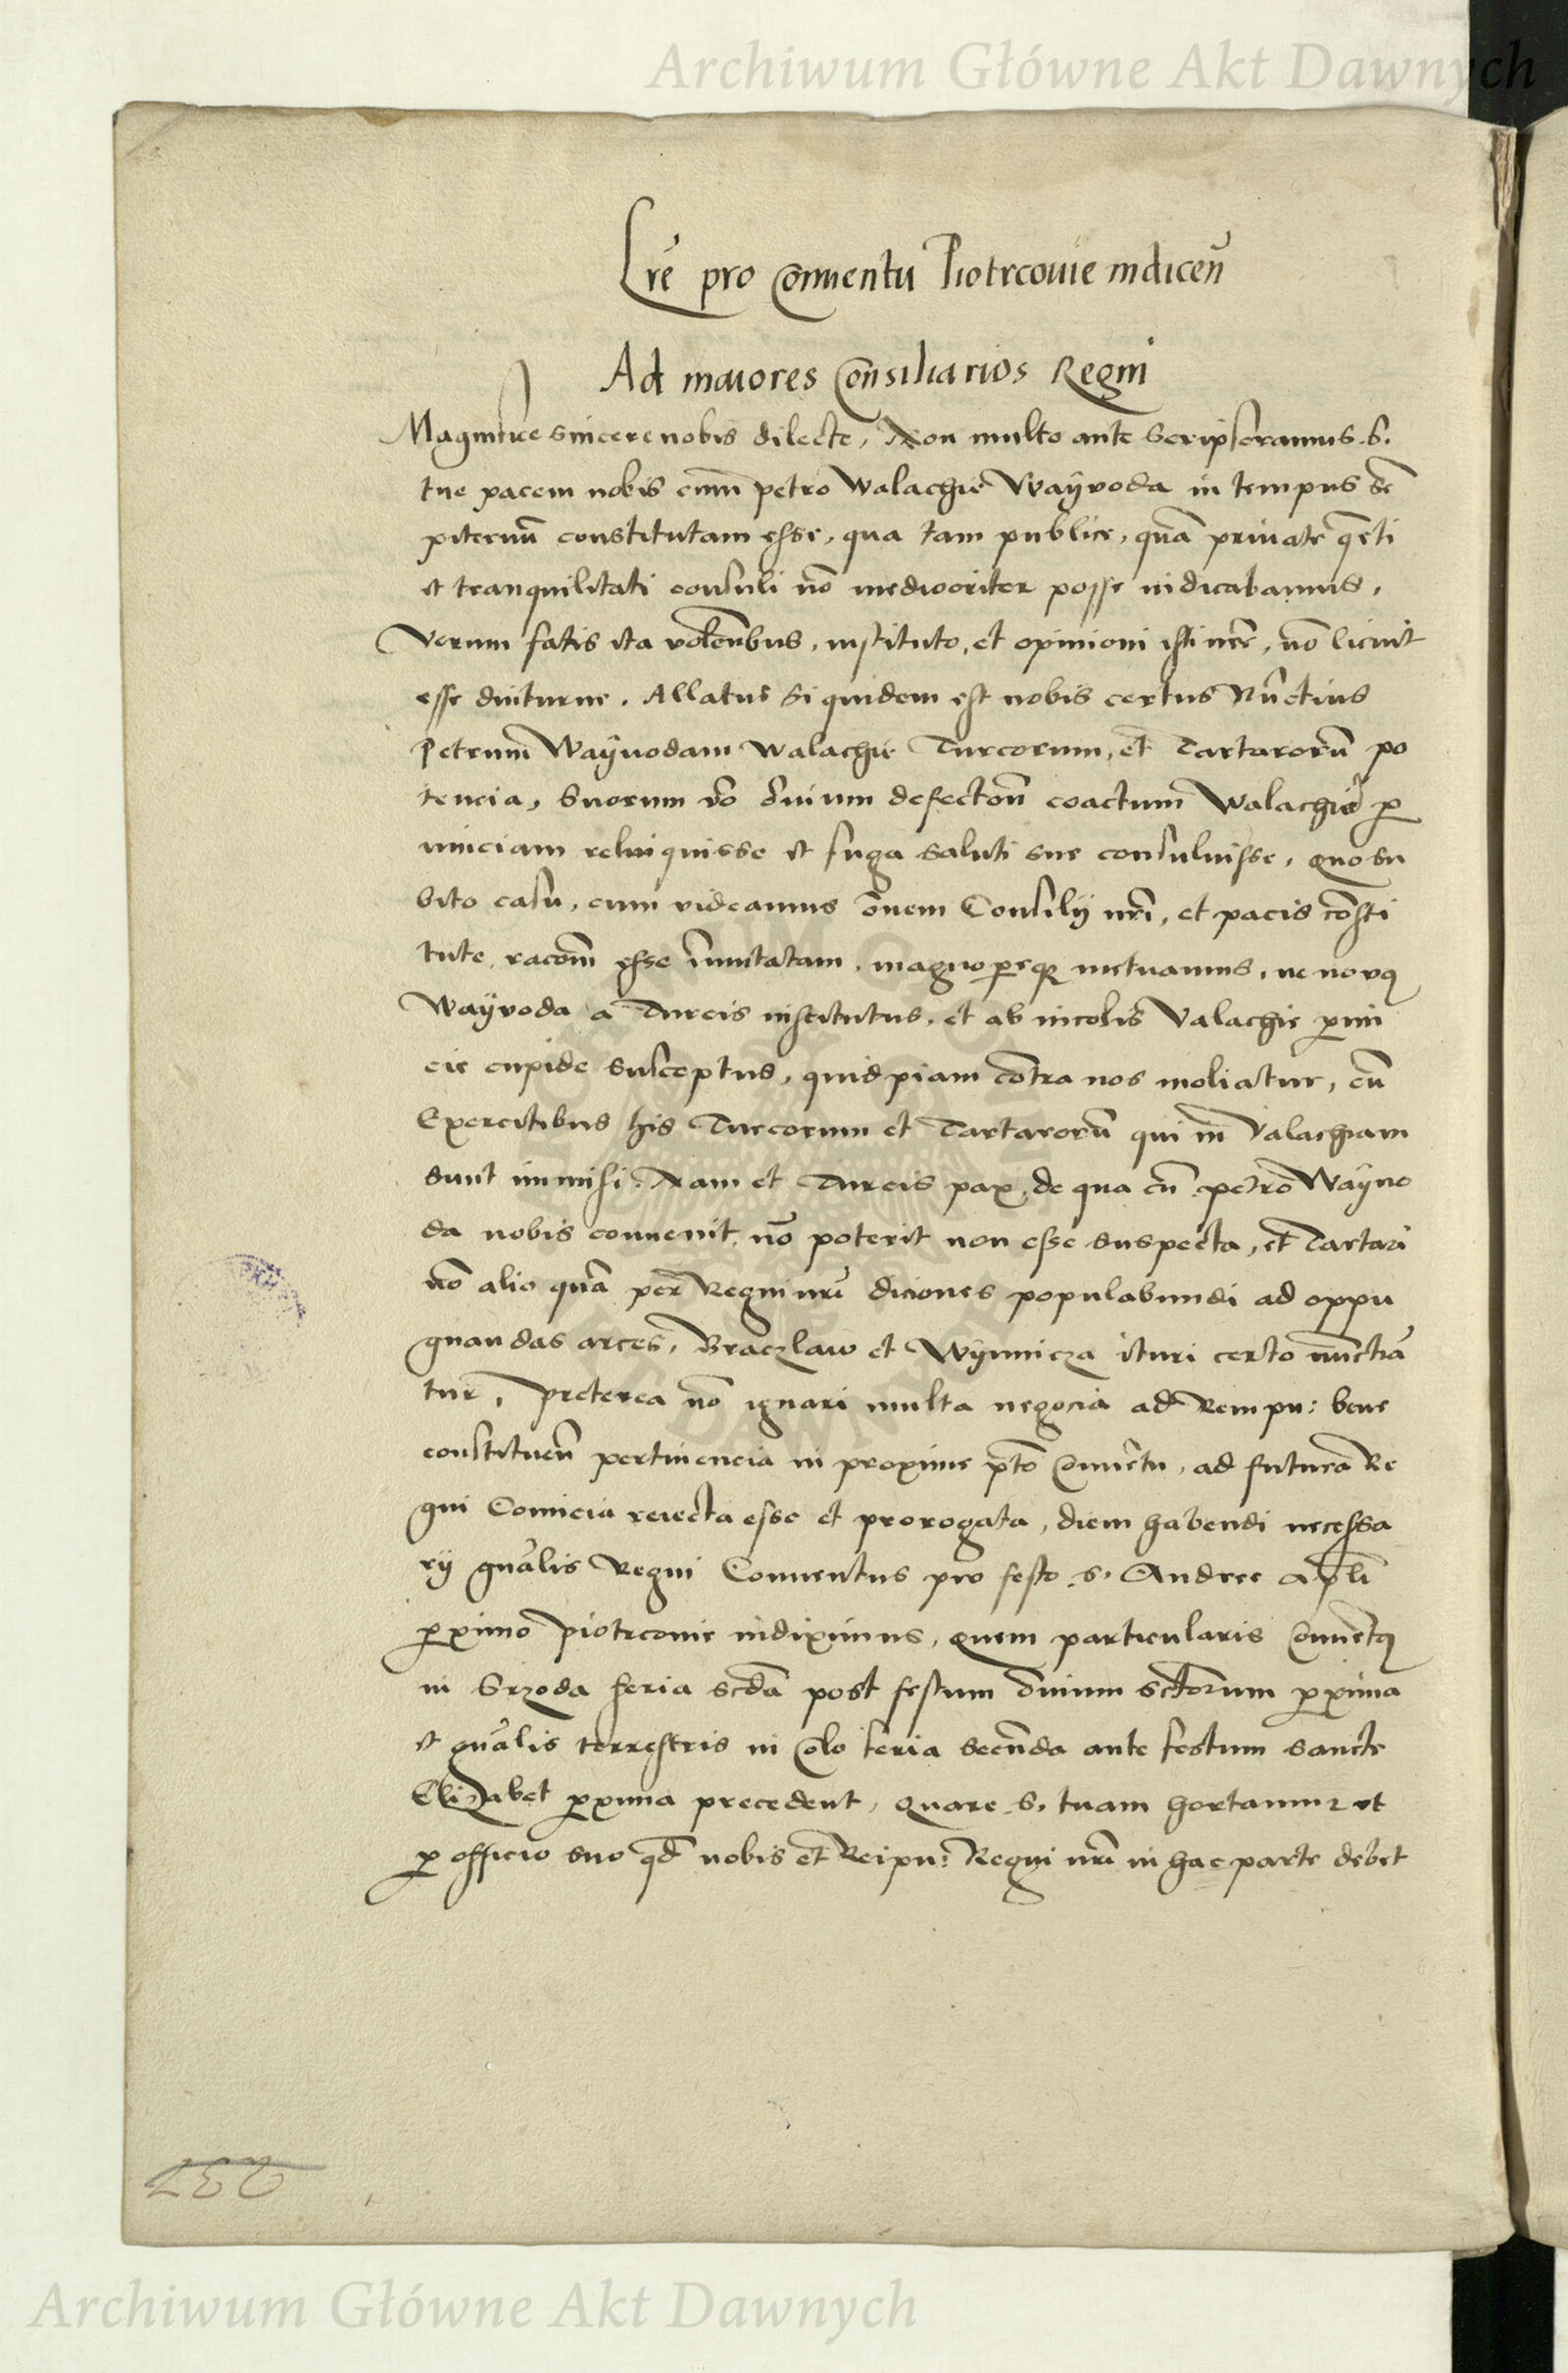 Archiwum Główne Akt Dawnych
Lr̃e pro Conuentu Piotrcouie indiceñ
Ad maiores Consiliarios Regni
Magnifice sincere nobis dilecte, Non multo ante scripseramus S.
tue pacem nobis cum petro Walachie Wayvoda in tempus se
piternũ constitutam esse, qua tam publice, quã priuate q̃eti
et tranquilitati consuli nõ mediocriter posse iudicabamus,
Verum fatis ita volentibus, instituto, et opinioni isti nr̃e, nõ licuit
esse diuturne. Allatus siquidem est nobis certus Nũctius
Petrum Wayuodam Walachie Turcorum, et Tartarorũ po
tencia, Suorum vo õnium defectioñ coactum Walachie ꝓ
uinciam reliquisse et fuga saluti sue consuluisse, quo su
bito casu, cum videamus õnem Consilij nr̃i, et pacis cõsti
tute, racoñm esse ĩmutatam, magnopereqꝫ metuamus, ne novꝯ
Wayvoda a Turcis institutus, et ab incolis Valachie ꝓuin
cie cupide susceptus, quidpiam cõtra nos moliatur, cũ
Exercitibus his Turcorum et Tartarorũ qui in Valachiam
sunt immisi. Nam et Turcis pax, de qua cũ petro Wayuo
da nobis conuenit, nõ poterit non esse suspecta, et Tartari
nõ alio quã per Regni nr̃i diciones populabundi ad oppu
gnandas arces, Braczlaw et Wynnicza ituri certo nũctiã
tur, Preterea nõ ignari multa negocia ad Rempu: bene
constitueñ pertinencia in proxime p̃to Conuẽtu, ad futurã Re
gni Comicia reiecta esse et prorogata, diem habendi necessa
rij gñalis Regni Conuentus pro festo S. Andree Apl̃i
ꝓximo Piotrcouie indiximus, quem particularis Conuẽtꝯ
in Srzoda feria scd̃a post festum õnium sctorum ꝓxima
et gñalis terrestris in Colo feria secũda ante festum sancte
Elizabet ꝓxima precedent, Quare S. tuam hortamur ut
ꝓ officio suo qd̃ nobis et Reipu: Regni nr̃i in hac parte debet
237
Archiwum Główne Akt Dawnych